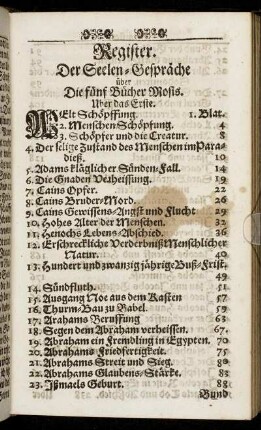 Register.
Der Seelen-Gespräche
über
Die fünf Bücher Mosis.
Uber das Erste.
WElt Schöpffung. 1. Blat.
2. Menschen Schöpfung. 4
3. Schöpfer und die Creatur. 8
4. Der selige Zustand des Menschen im Para-
dieß. 10
5. Adams kläglicher Sünden-Fall. 14
6. Die Gnaden Verheissung. 19
7. Cains Opfer. 22
8. Cains Bruder-Mord. 26
9. Cains Gewissens-Angst und Flucht 29
10. Hohes Alter der Menschen. 32
11. Henochs Lebens-Abschied. 36
12. Erschreckliche Verderbniß Menschlicher
Natur. 40
13. Hundert und zwanzig jährige Buß-Frist.
49
14. Sündfluth. 51
15. Ausgang Noe aus dem Kasten 57
16. Thurm-Bau zu Babel. 59
17. Arahams Beruffung 63
18. Segen dem Abraham verheissen. 67.
19. Abraham ein Fremdling in Egypten. 70
20. Abrahams Friedfertigkeit. 75
21. Abrahams Streit und Sieg. 80
22. Abrahams Glaubens-Stärcke. 83
23. Ißmaels Geburt. 88
Bund